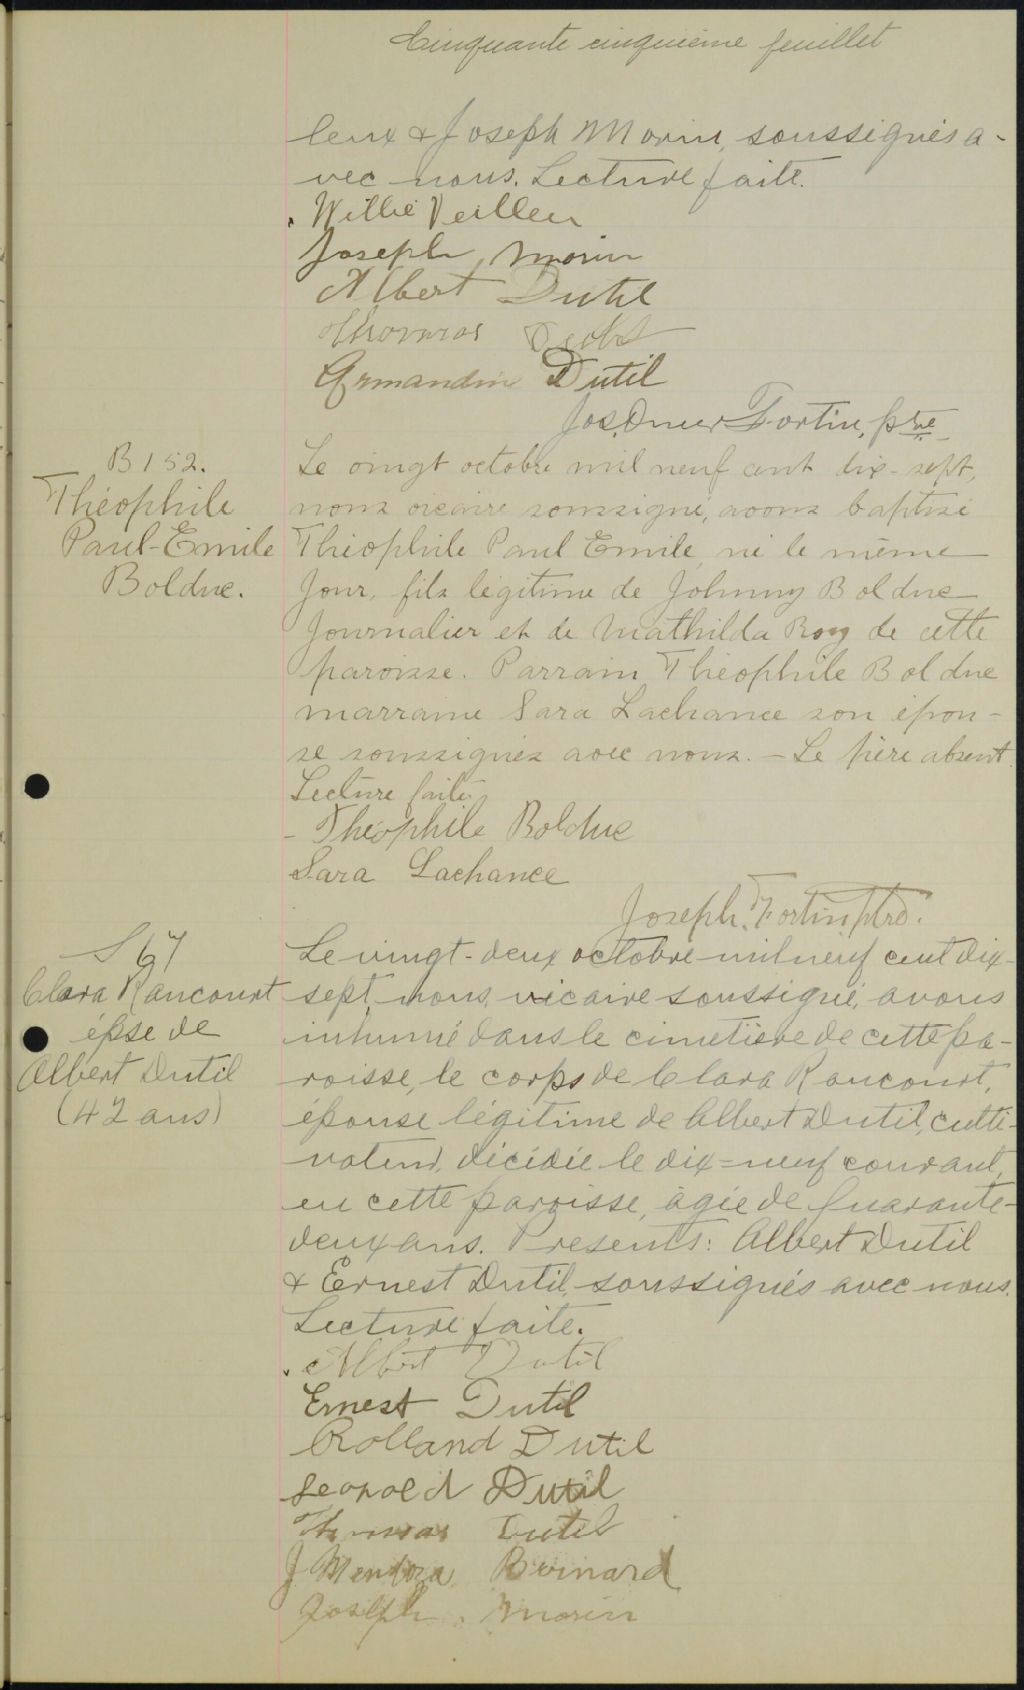 Cinquante cinquième feuillet
leux & Joseph Morin, soussignés a-
vec nous. Lecture faite.
Willie Veilleux
Joseph Morin
Albert Dutil
Thomas
Armandine Dutil
Jos. Omer Fortin, ptre
B 152.
Théophile
Paul-Emile
Bolduc.
Le vingt octobre mil neuf cent dix-sept,
nous vicaire soussigné, avons baptisé
Théophile Paul Emile, né le même
jour, fils légitime de Johnny Bolduc
journalier et de Mathilda Roy de cette
paroisse. Parrain Théophile Bolduc
marraine Sara Lachance son épou-
se soussignés avec nous. - Le père absent.
Lecture faite.
Théophile Bolduc
Sara Lachance
Joseph. Fortin ptre.
S 67
Clara Rancourt
épse de
Albert Dutil
(42 ans)
Le vingt-deux octobre mil neuf cent dix-
sept, nous, vicaire soussigné, avons
inhumé dans le cimetière de cette pa-
roisse, le corps de Clara Rancourt,
épouse légitime de Albert Dutil, culti-
vateur, décédée le dix=neuf courant,
en cette paroisse, âgée de quarante-
deux ans. Présents: Albert Dutil
& Ernest Dutil, soussignés avec nous.
Lecture faite.
Albert Dutil
Ernest Dutil
Rolland Dutil
Leopold Dutil
Thomas Dutil
J Mendoza
Joseph Morin